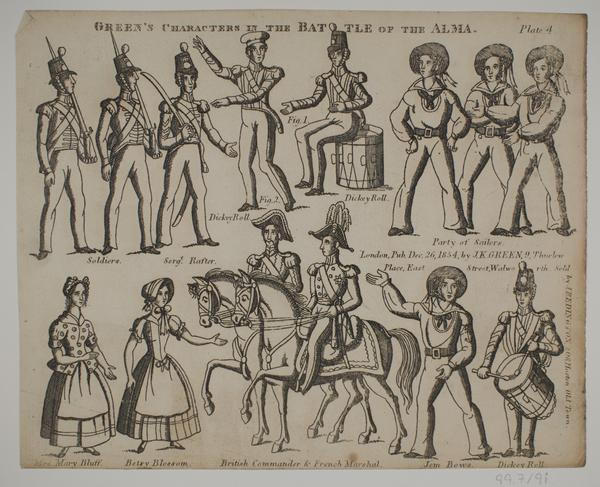 GREEN'S CHARACTERS IN THE BATO TLE OF THE ALMA.
Plate 4
Fig. 1.
Fig. 2.
Dickey Roll.
Dickey Roll.
Soldiers.
Sergt. Rafter.
Party of Sailors.
London, Pub. Dec. 26, 1854, by J.K. GREEN, 9, Thurlow
Place, East Street, Walwo rth. Sold
Mrs. Mary Bluff.
Betsy Blossom.
British Commander & French Marshal.
Jem Bows.
Dickey Roll.
99.7/91